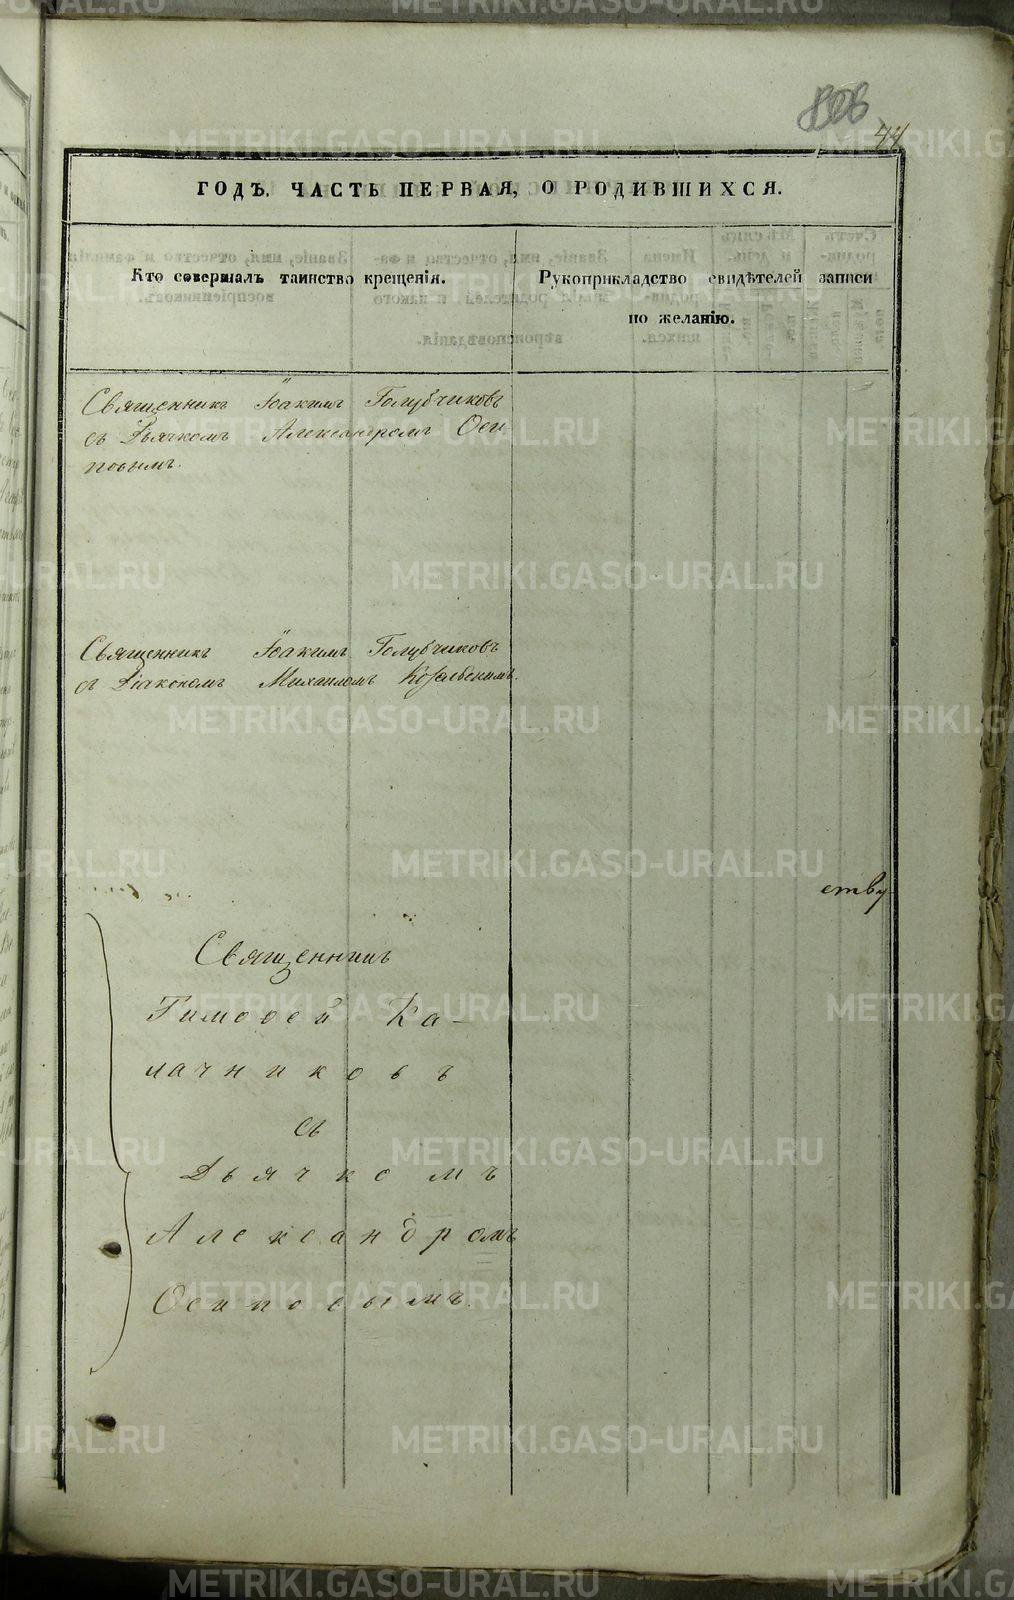 44
ГОДЪ. ЧАСТЬ ПЕРВАЯ, О РОДИВШИХСЯ.
Кто совершалъ таинство крещенія.
Рукоприкладство свидѣтелей записи
по желанію.
Священникъ Іоакимъ Голубчиковъ
съ Дьячкомъ Александромъ Оси
повымъ.
Священникъ Іоакимъ Голубчиковъ
съ Діакономъ Михаиломъ Козельскимъ.
ству
Священникъ
Тимоѳей Ка-
лачниковъ
съ
Дьячкомъ
Александромъ
Осиповымъ.
METRIKI.GASO-URAL.RU